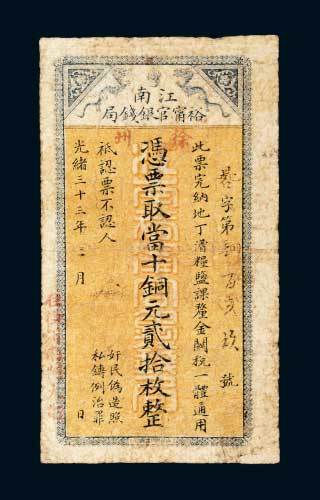 江南
裕甯官銀錢局
徐州
此票完納地丁漕糧鹽課釐金關稅一體通用
憑票取當十銅元貳拾枚整
祗認票不認人
光緒三十三年 月 日
字第 百 號
奸民偽造照
私鑄例治罪